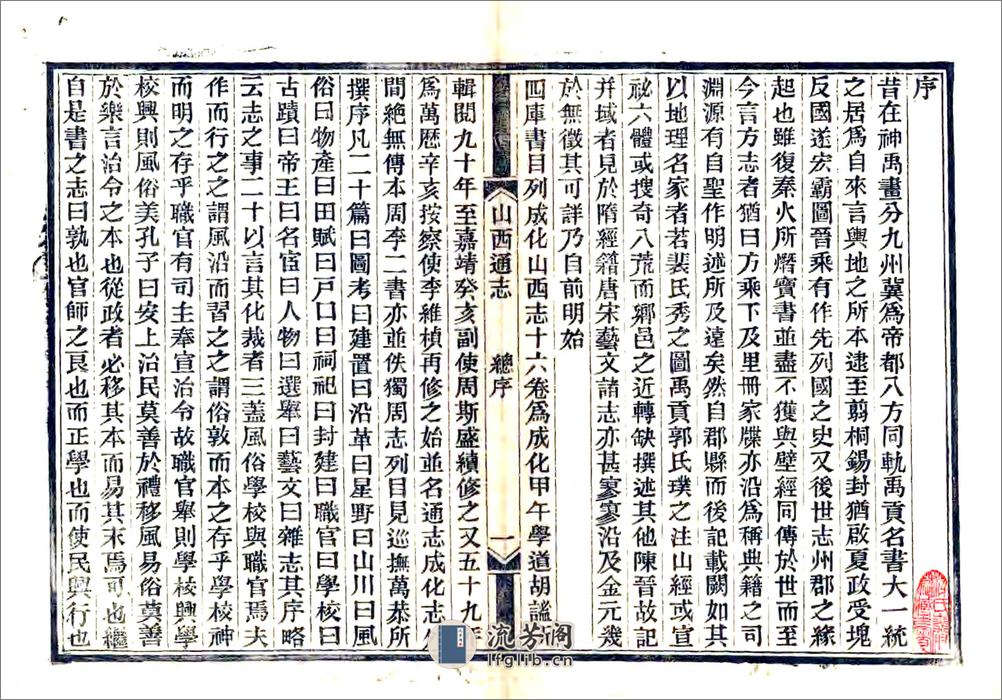 序
昔在神禹畫分九州冀爲帝都八方同軌禹貢名書大一統
之居爲自來言輿地之所本逮至翦桐錫封猶啟夏政受塊
反國遂宏霸圖晉乘有作先列國之史又後世志州郡之緣
起也雖復秦火所熸寶書並盡不獲與壁經同傳於世而至
今言方志者猶曰方乘下及里冊家牒亦沿爲稱典籍之司
淵源有自聖作明述所及遠矣然自郡縣而後記載闕如其
以地理名家者若裴氏秀之圖禹貢郭氏璞之注山經或宣
祕六體或搜奇八荒而鄉邑之近轉缺撰述其他陳晉故記
并域者見於隋經籍唐宋藝文諸志亦甚寥寥沿及金元幾
於無徵其可詳乃自前明始
四庫書目列成化山西志十六卷爲成化甲午學道胡謐
輯閱九十年至嘉靖癸亥副使周斯盛續修之又五十九年
山西通志
總序
一
爲萬歷辛亥按察使李維楨再修之始並名通志成化志
間絕無傳本周李二書亦並佚獨周志列目見巡撫萬恭所
撰序凡二十篇曰圖考曰建置曰沿革曰星野曰山川曰風
俗曰物產曰田賦曰戶口曰祠祀曰封建曰職官曰學校曰
古蹟曰帝王曰名宦曰人物曰選舉曰藝文曰雜志其序略
云志之事二十以言其化裁者三蓋風俗學校與職官焉夫
作而行之之謂風沿而習之之謂俗敦而本之存乎學校神
而明之存乎職官有司主奉宣治令故職官舉則學校興學
校興則風俗美孔子曰安上治民莫善於禮移風易俗莫善
於樂言治令之本也從政者必移其本而易其末焉可也繼
自是書之志曰孰也官師之良也而正學也而使民興行也
流芳閣
lfglib.cn